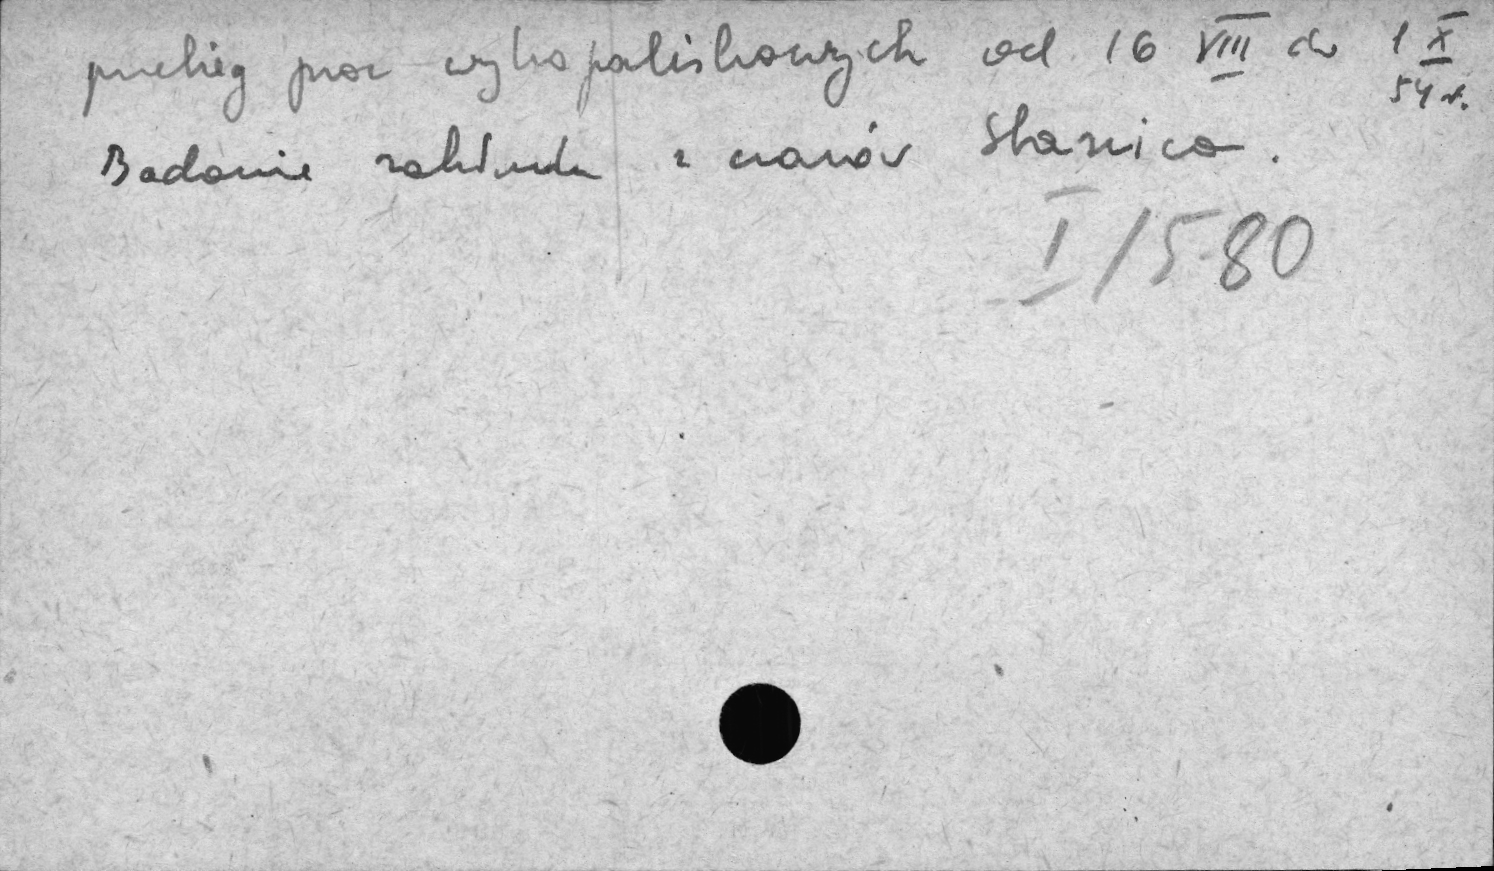 przebieg prac wykopaliskowych od 16 VIII do 1 X
54 r.
Badanie zakładu z czasów Staszica.
I/1580